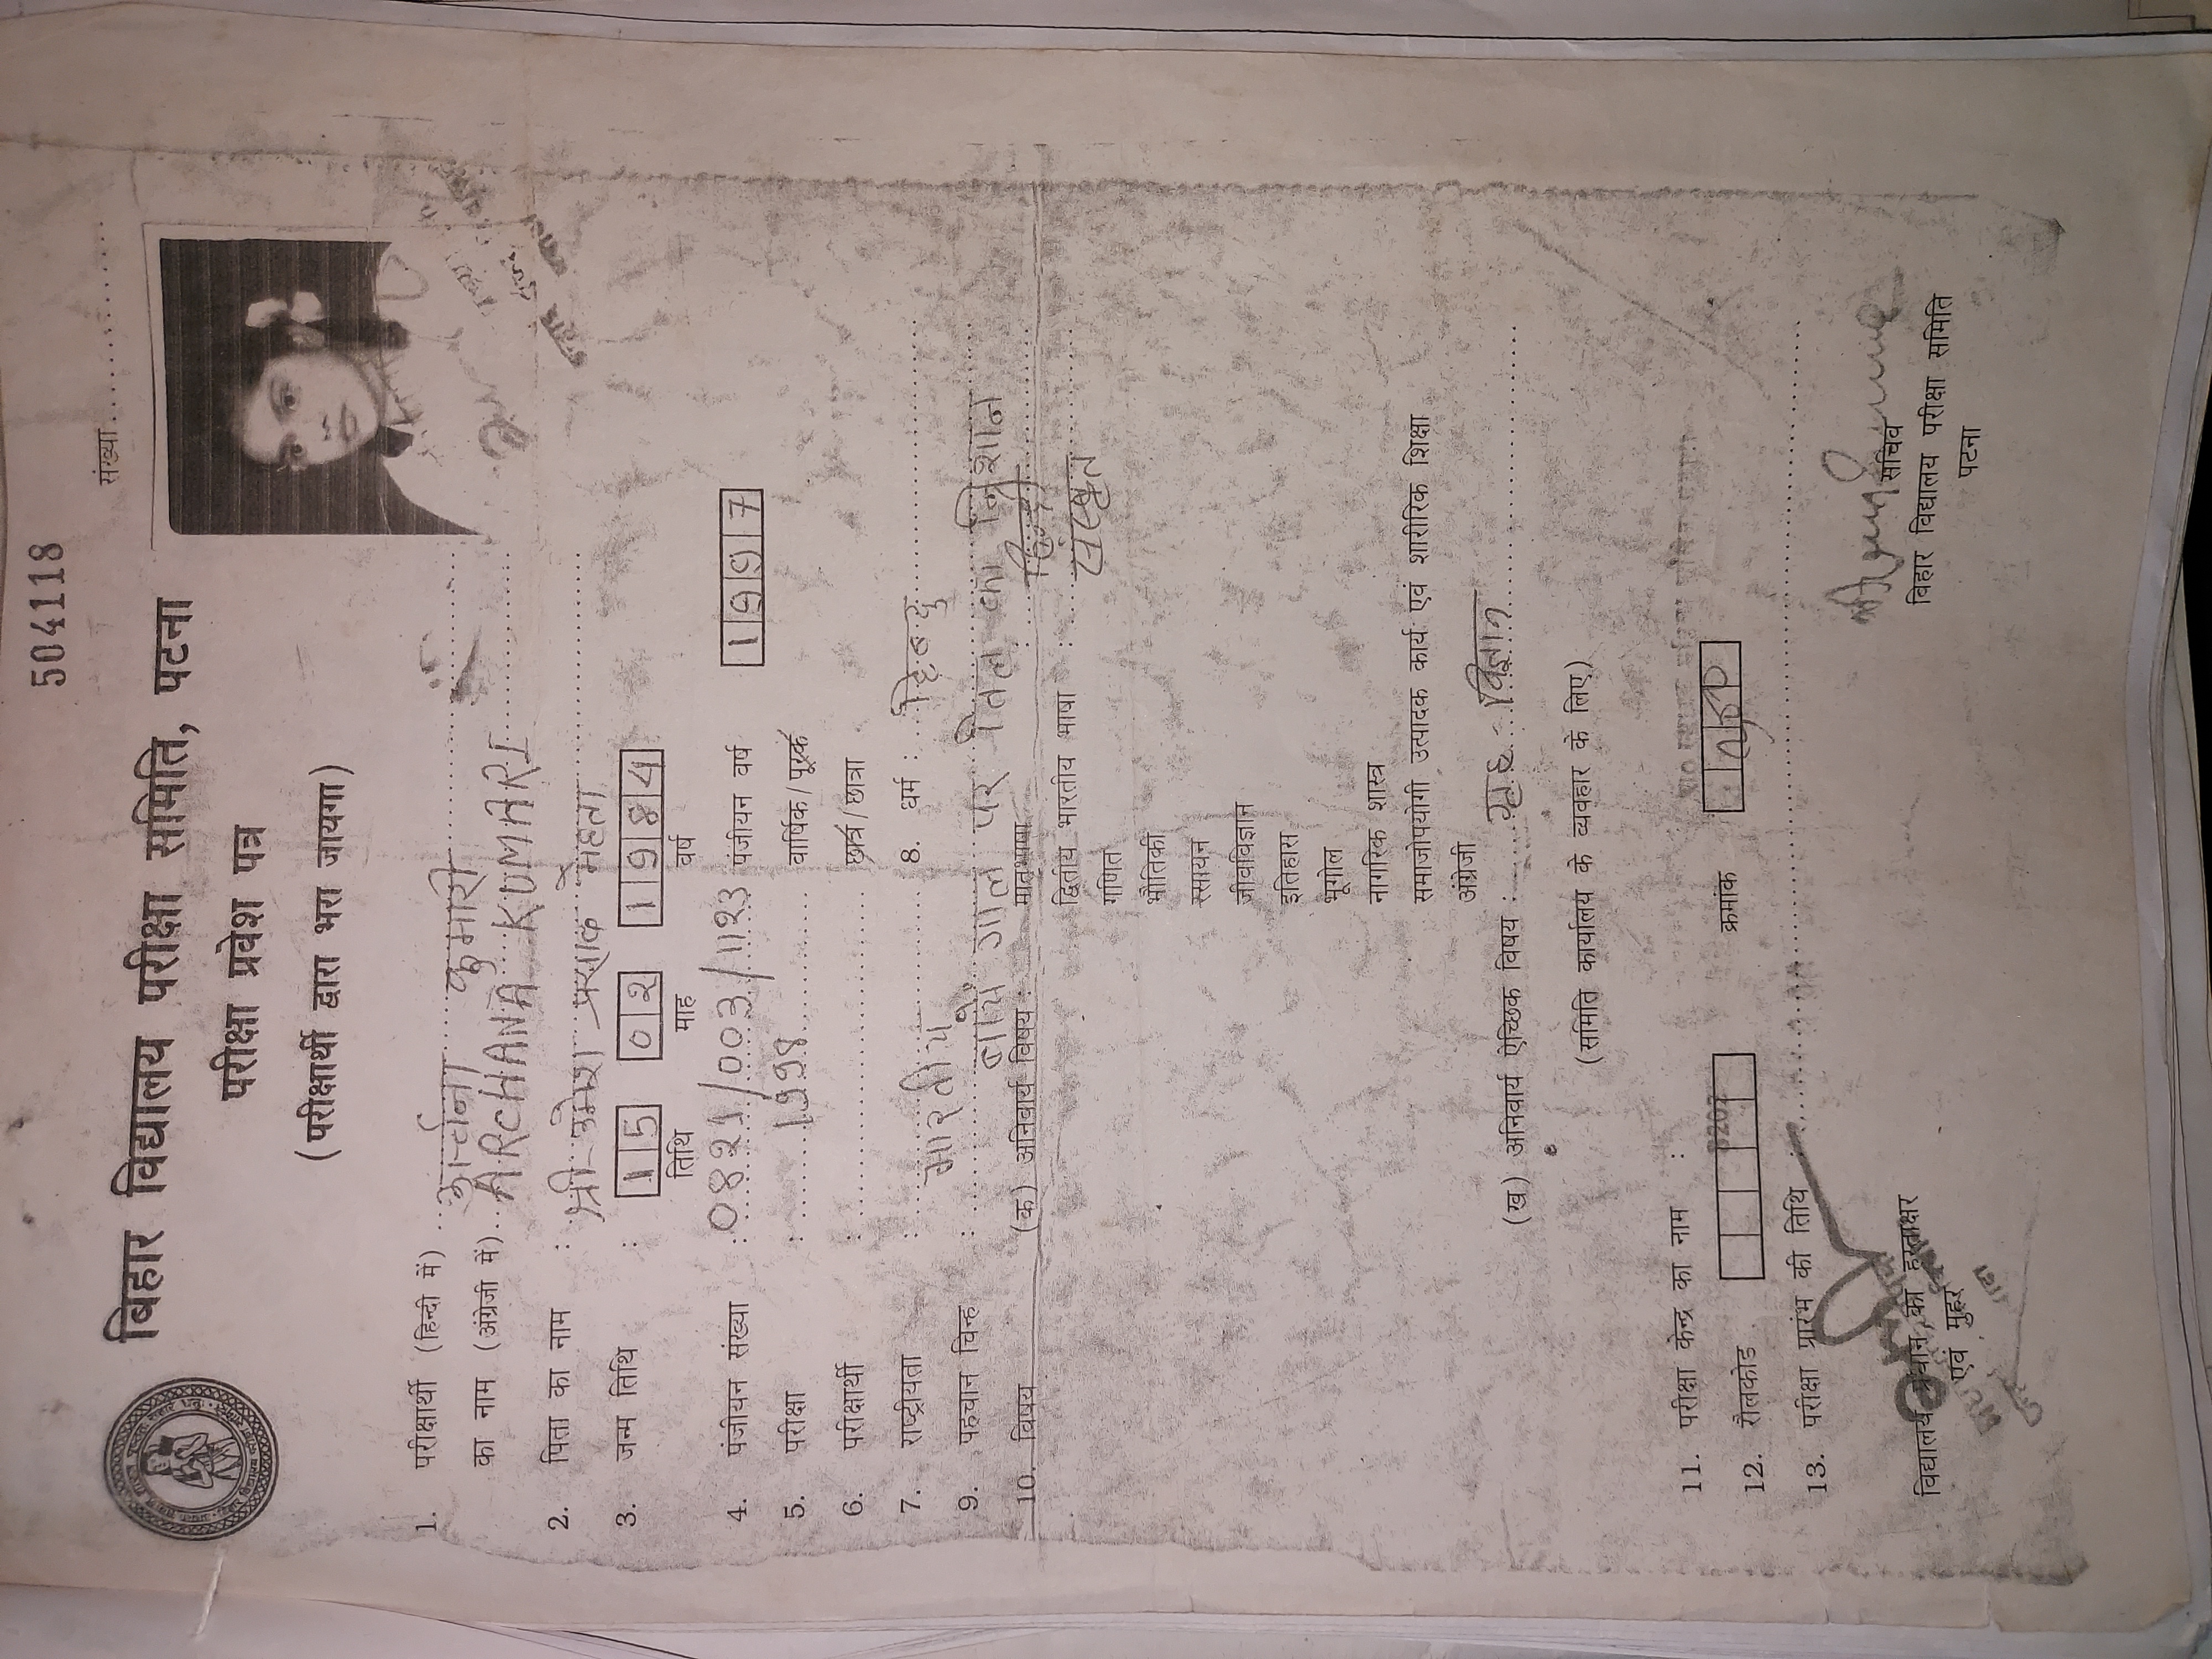 504118
संख्या
बिहार विद्यालय परीक्षा समिति, पटना
परीक्षा प्रवेश पत्र
(परीक्षार्थी द्वारा भरा जायगा)
1. परीक्षार्थी (हिन्दी में) अर्चना कुमारी
का नाम (अंग्रेजी में) ARCHANA KUMARI
2. पिता का नाम : श्री उमेश प्रसाद मेहता
3. जन्म तिथि : 15 02 1984
तिथि माह वर्ष
4. पंजीयन संख्या : 0821/003/1123 पंजीयन वर्ष 1997
5. परीक्षा : 1998 वार्षिक / पूरक
6. परीक्षार्थी : छात्र / छात्रा
7. राष्ट्रीयता : भारतीय 8. धर्म : हिन्दु
9. पहचान चिन्ह : बायें गाल पर तिल का निशान
10. विषय (क) अनिवार्य विषय : मातृभाषा : हिन्दी
द्वितीय भारतीय भाषा : संस्कृत
गणित
भौतिकी
रसायन
जीवविज्ञान
इतिहास
भूगोल
नागरिक शास्त्र
समाजोपयोगी उत्पादक कार्य एवं शारीरिक शिक्षा
अंग्रेजी
(ख) अनिवार्य ऐच्छिक विषय : गृह विज्ञान
(समिति कार्यालय के व्यवहार के लिए)
11. परीक्षा केन्द्र का नाम :
12. रौलकोड क्रमांक
13. परीक्षा प्रारंभ की तिथि :
विद्यालय प्रधान का हस्ताक्षर
एवं मुहर
सचिव
बिहार विद्यालय परीक्षा समिति
पटना